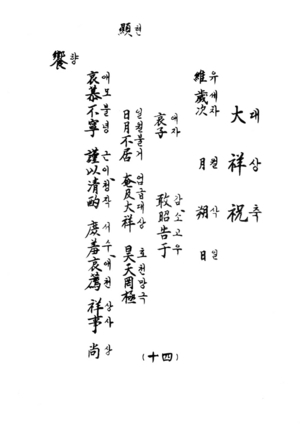 大祥祝
대상축
維歲次 月 朔 日
유세차 월 삭 일
哀子 敢昭告于
애자 감소고우
顯
현
日月不居 奄及大祥 昊天罔極
일월불거 엄급대상 호천망극
哀慕不寧 謹以清酌 庶羞哀薦 祥事 尚
애모불녕 근이청작 서수애천 상사 상
饗
향
(十四)